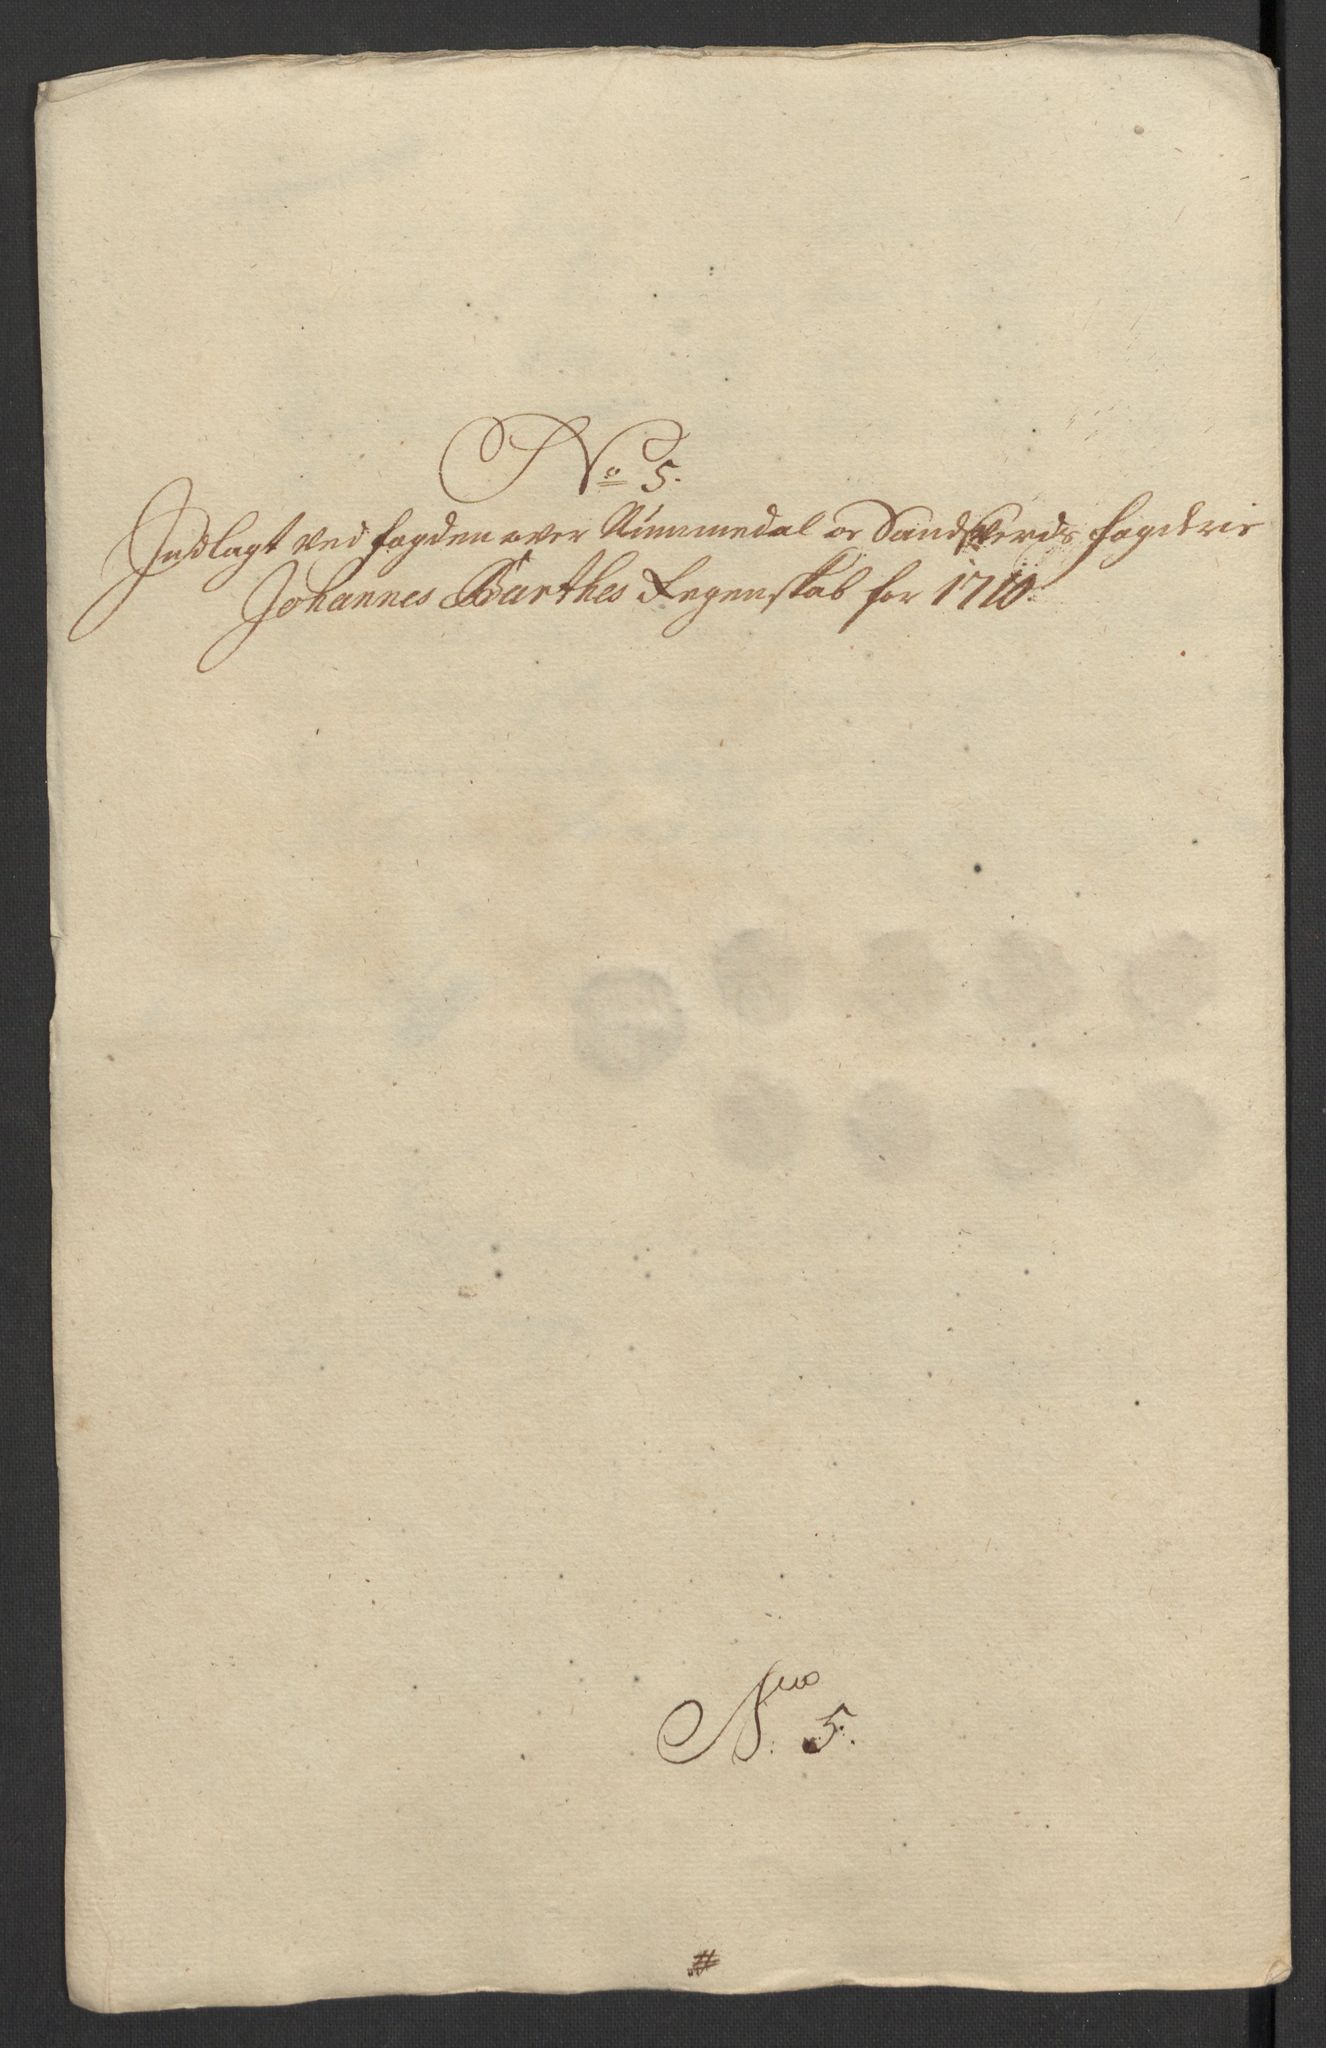 No 5.
Indlagt ved fogden over Nummedal oc Sandsverds fogderie
Johannes Barthes Regenskab for 1710.
No 5.